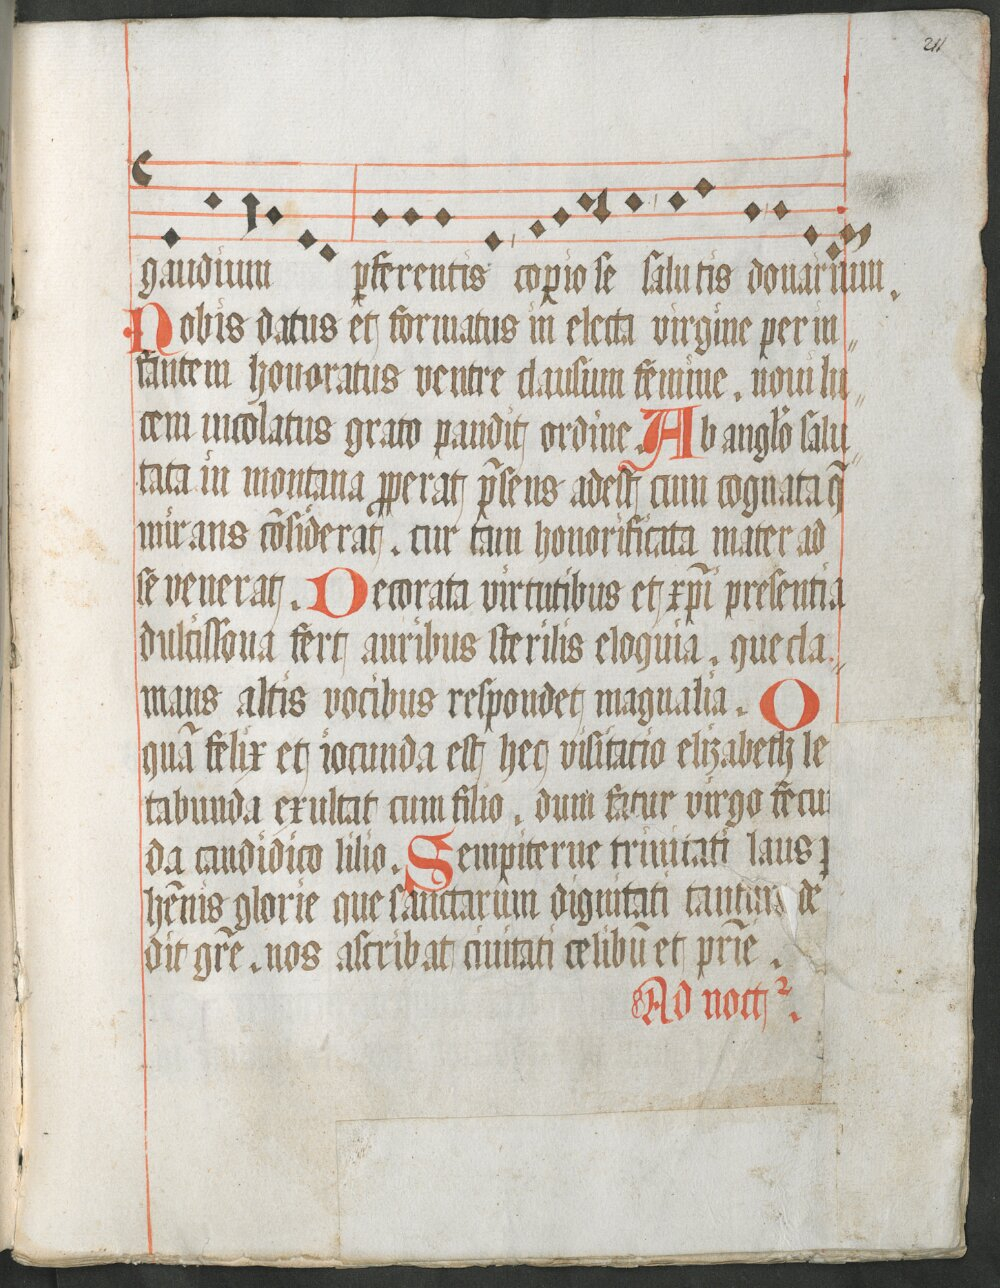 211
gaudium p̄ferentis copiose salutis donarium.
Nobis datus et formatus in electa virgine per in〃
fantem honoratus ventre clausum femine. novi lu〃
cem incolatus grato pandit ordine. Ab anglo᷒ salu〃
tata in montana ꝓperat p̄sens adest cum cognata q̄
mirans cōsiderat. cur tam honorificata mater ad
se venerat. Decorata virtutibus et xp̄i presentia
dulcissona fert auribus sterilis eloquia. que cla〃
mans altis vocibus respondet magnalia. O
quā felix et iocunda est hec visitatio elizabeth le
tabunda exultat cum filio. dum fatur virgo fecu
da candidico lilio. Sempiterne trinitati laus ꝑ
hēnis glorie que sanctarum dignitati tantum de
dit grē. nos ascribat civitati celibū et prīe.
Ad noct².